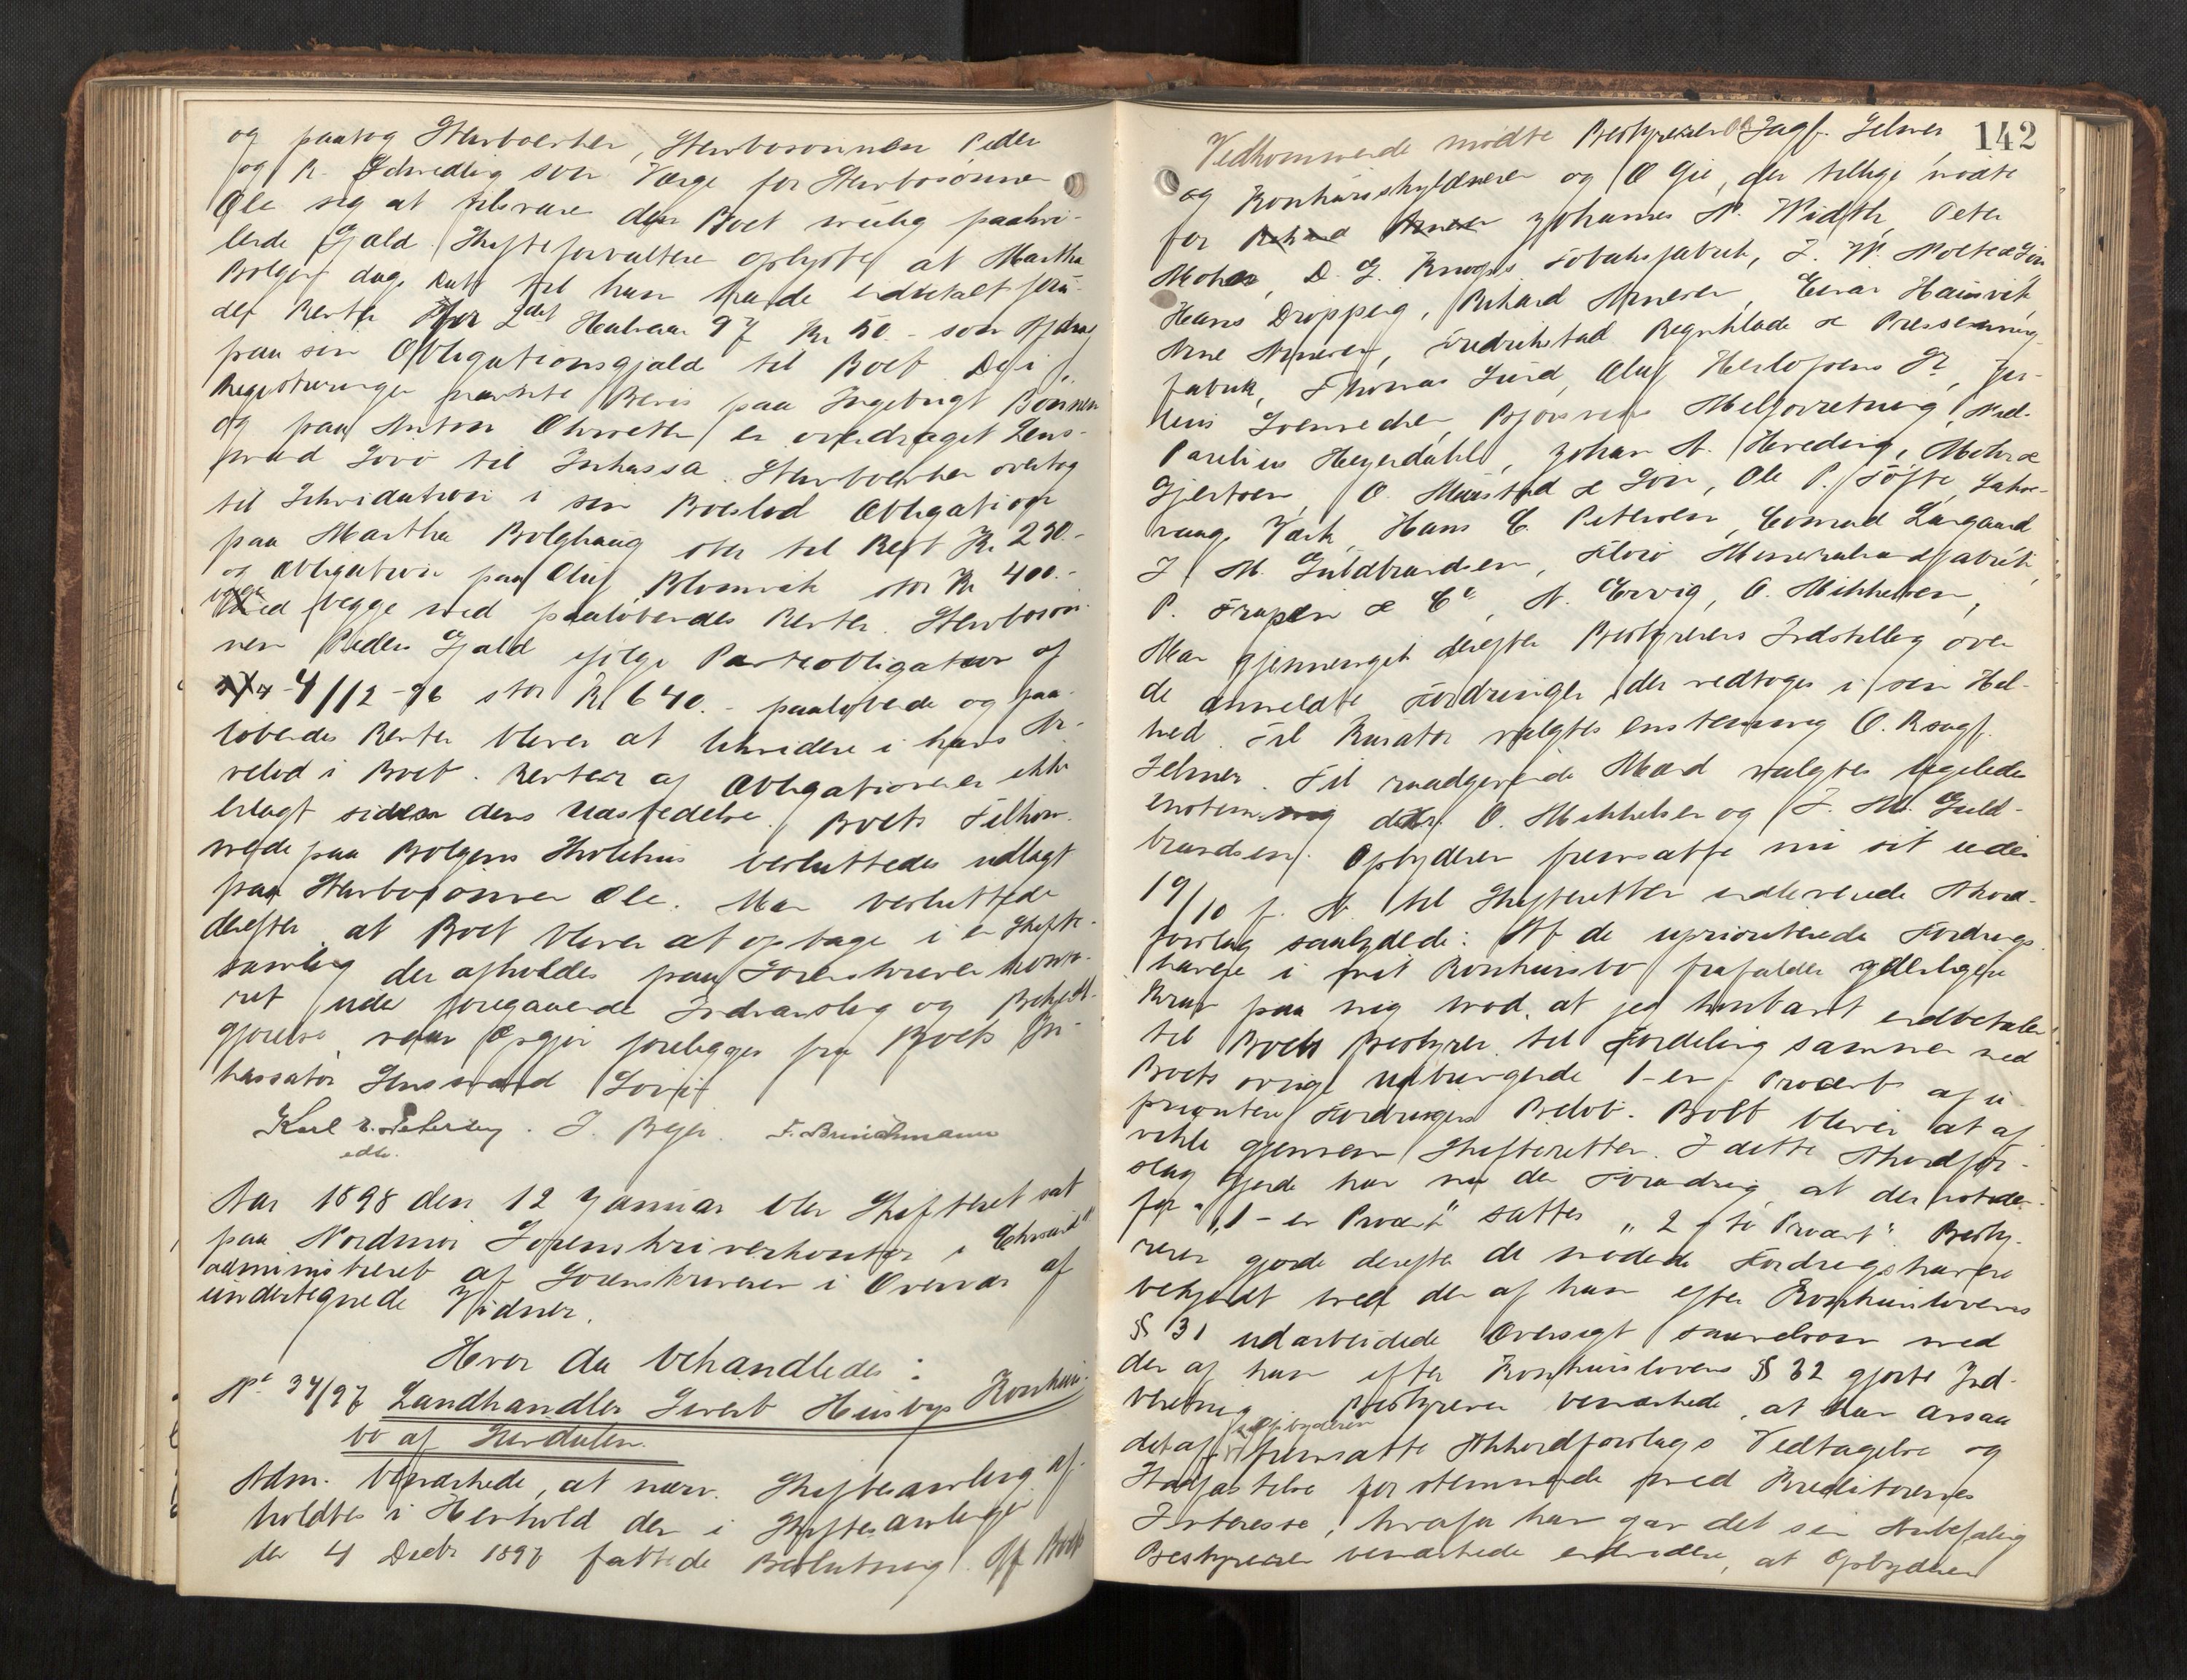 og paatog Stervboerken, Stervbosønnen Peder
og R. Schredlig som Værge for Stervbosønnen
Ole sig at tilsvare den Boet mulig paahvi-
lende Gjæld. Skifteforvalteren oplyste, at Martha
Bolgen dags Dato til ham havde indbetalt for-
den Rente for 2det Halvaar 97 Kr 50.- som Afdrag
paa sin Obligationsgjæld til Boet. De i
Registreringen nævnte Bevis paa Ingebrigt
og paa Anton er overdraget Lens-
mand Lovi til Inkassa. Stervboerken overtog
til Likvidation i sin Boeslod Obligation
paa Martha Bolghaug stor til Rest Kr 230.-
og Obligation paa Oluf Blomvik stor Kr 400.-
begge
begge med paaløbendes Renter. Stervbosøn-
nen Peders Gjæld ifølge Panteobligation af
4/12-96 stor Kr 640.- paaløbende og paa-
løbendes Renter bliver at likvidere i hans Ar-
velod i Boet. Renter af Obligationen er ikke
erlagt siden dens Udstedelse. Boets Tilkom-
mende paa Bolgens Skolehus besluttedes udlagt
paa Stervbosønnen Ole. Man besluttede
derefter at Boet bliver at optage i en Skifte-
samling der afholdes paa Sorenskriverkonto-
ret under foregaaende Indvarsling og Bekjendt-
gjørelse, naar Opgjør foreligger fra Boets In-
kassator Lensmand Lovi
Karl E. Petersen. J. Beyer. F. Brinchmann
edsv.
Aar 1898 den 12 Januar blev Skifteret sat
paa Nordmør Sorenskriverkontor i Christianssund
administreret af Sorenskriveren i Overvær af
undertegnede Vidner.
Hvor da behandledes:
No 34/97 Landhandler Sivert Husbys Konkurs-
bo af Surdalen.
Adm. bemærkede, at nærv. Skiftesamling af-
holdtes i Henhold den i Skiftesamlingen
den 4 Decbr 1897 fattede Beslutning. Af Boet
142
Vedkommende mødte Bestyreren O.R.Sagf. Selmer
og Konkursskyldneren og O Gie, der tillige mødte
for Johannes N. Width, Peter
Møller, D. G. Krogs Tobaksfabrik, J. W. Moltes Søn
Hans Dropping, Rikard Arnesen, Einar Hainsvik,
Arne Arnesen, Fredrikstad Bogntlade & Pressenning-
fabrik, Thomas Lund, Oluf Herlofsens Sr, Jør-
Melforretning,
Parelius Heyerdahl, Johan N. Hvedding, Mohr &
Gjertsen, O. Mustad & Søn, Ole P. Tøfte,
Værk, Hans C. Petersen, Conrad Langaard
J. M. Guldbrandsen, Mineralvandfabrik,
P. Fransen & Co, N. Ervig, O. Mikkelsen,
Man gjennemgik derefter Bestyrerens Indstilling over
de anmeldte Fordringer, der vedtoges i sin Hel-
hed. Til Kurator valgtes enstemmig O.R.sagf.
Selmer. Til raadgivende Mænd valgtes ligeledes
enstemmig dHr. O. Mikkelsen og J. M. Guld-
brandsen. Opbyderen fremsatte nu sit under
19/10 f. A. til Skifteretten indleverede Akord-
forslag saalydende: "At de uprioriterede Fordrings-
havere i mit Konkursbo frafalder yderligere
Krav paa mig mod, at jeg kontant indbetaler
til Boets Bestyrer til Fordeling sammen med
Boets øvrige Udbringende 1-en - Procent af u-
prioriterte Fordringers Beløb. Boet bliver at af-
vikle gjennem Skifteretten. I dette Akordfor-
slag gjorde han nu den Forandring, at der istede-
for "1-en Procent" sattes "2-to Procent". Besty-
reren gjorde derefter de mødende Fordringshavere
bekjendt med den af ham efter Konkurslovens
§ 31 udarbeidede Oversigt saavelsom med
den af ham efter Konkurslovens § 32 gjorte Ind-
beretning. Bestyreren bemærkede, at han ansaa
det af Opbyderen
fremsatte Akkordforslags Vedtagelse og
Stadfæstelse for stemmende med Kreditorernes
Interesse, hvorfor han gav det sin Anbefaling
Bestyreren bemærkede endvidere, at Opbyderen